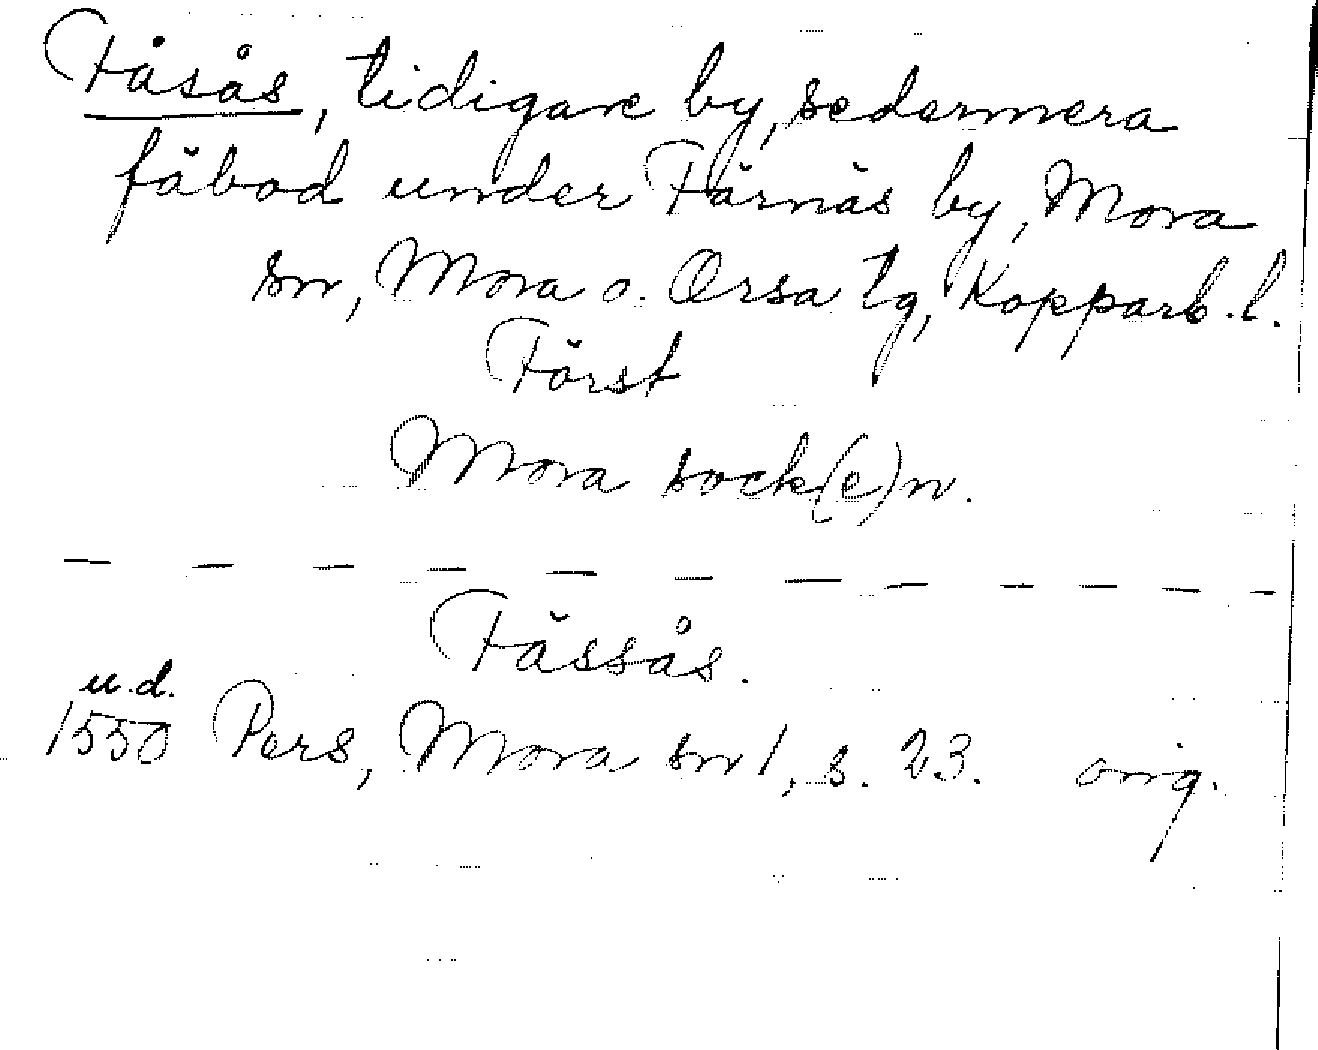 Fåsås, tidigare by, sedermera
fäbod under Färnäs by, Mora
sn, Mora o. Orsa tg, Kopparb. l.
Först
Mora sock(e)n.
— — — — — — — — — — —
Fässås.
u.d.
1550 Pers, Mora sn 1, s. 23. orig.